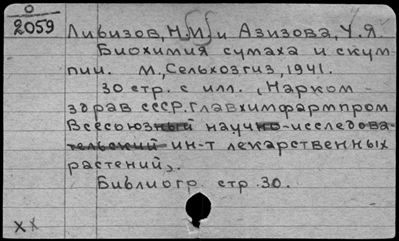 0
2059
Ливизов, Н.М. и Азизова, Ч.Я.
Биохимия сумаха и скум-
пии. М., Сельхозгиз, 1941.
30 стр. с илл. (Нарком-
здрав СССР. Главхимфармпром
Всесоюзный научно-исследова-
тельский ин-т лекарственных
растений).
Библиогр. стр. 30.
хх